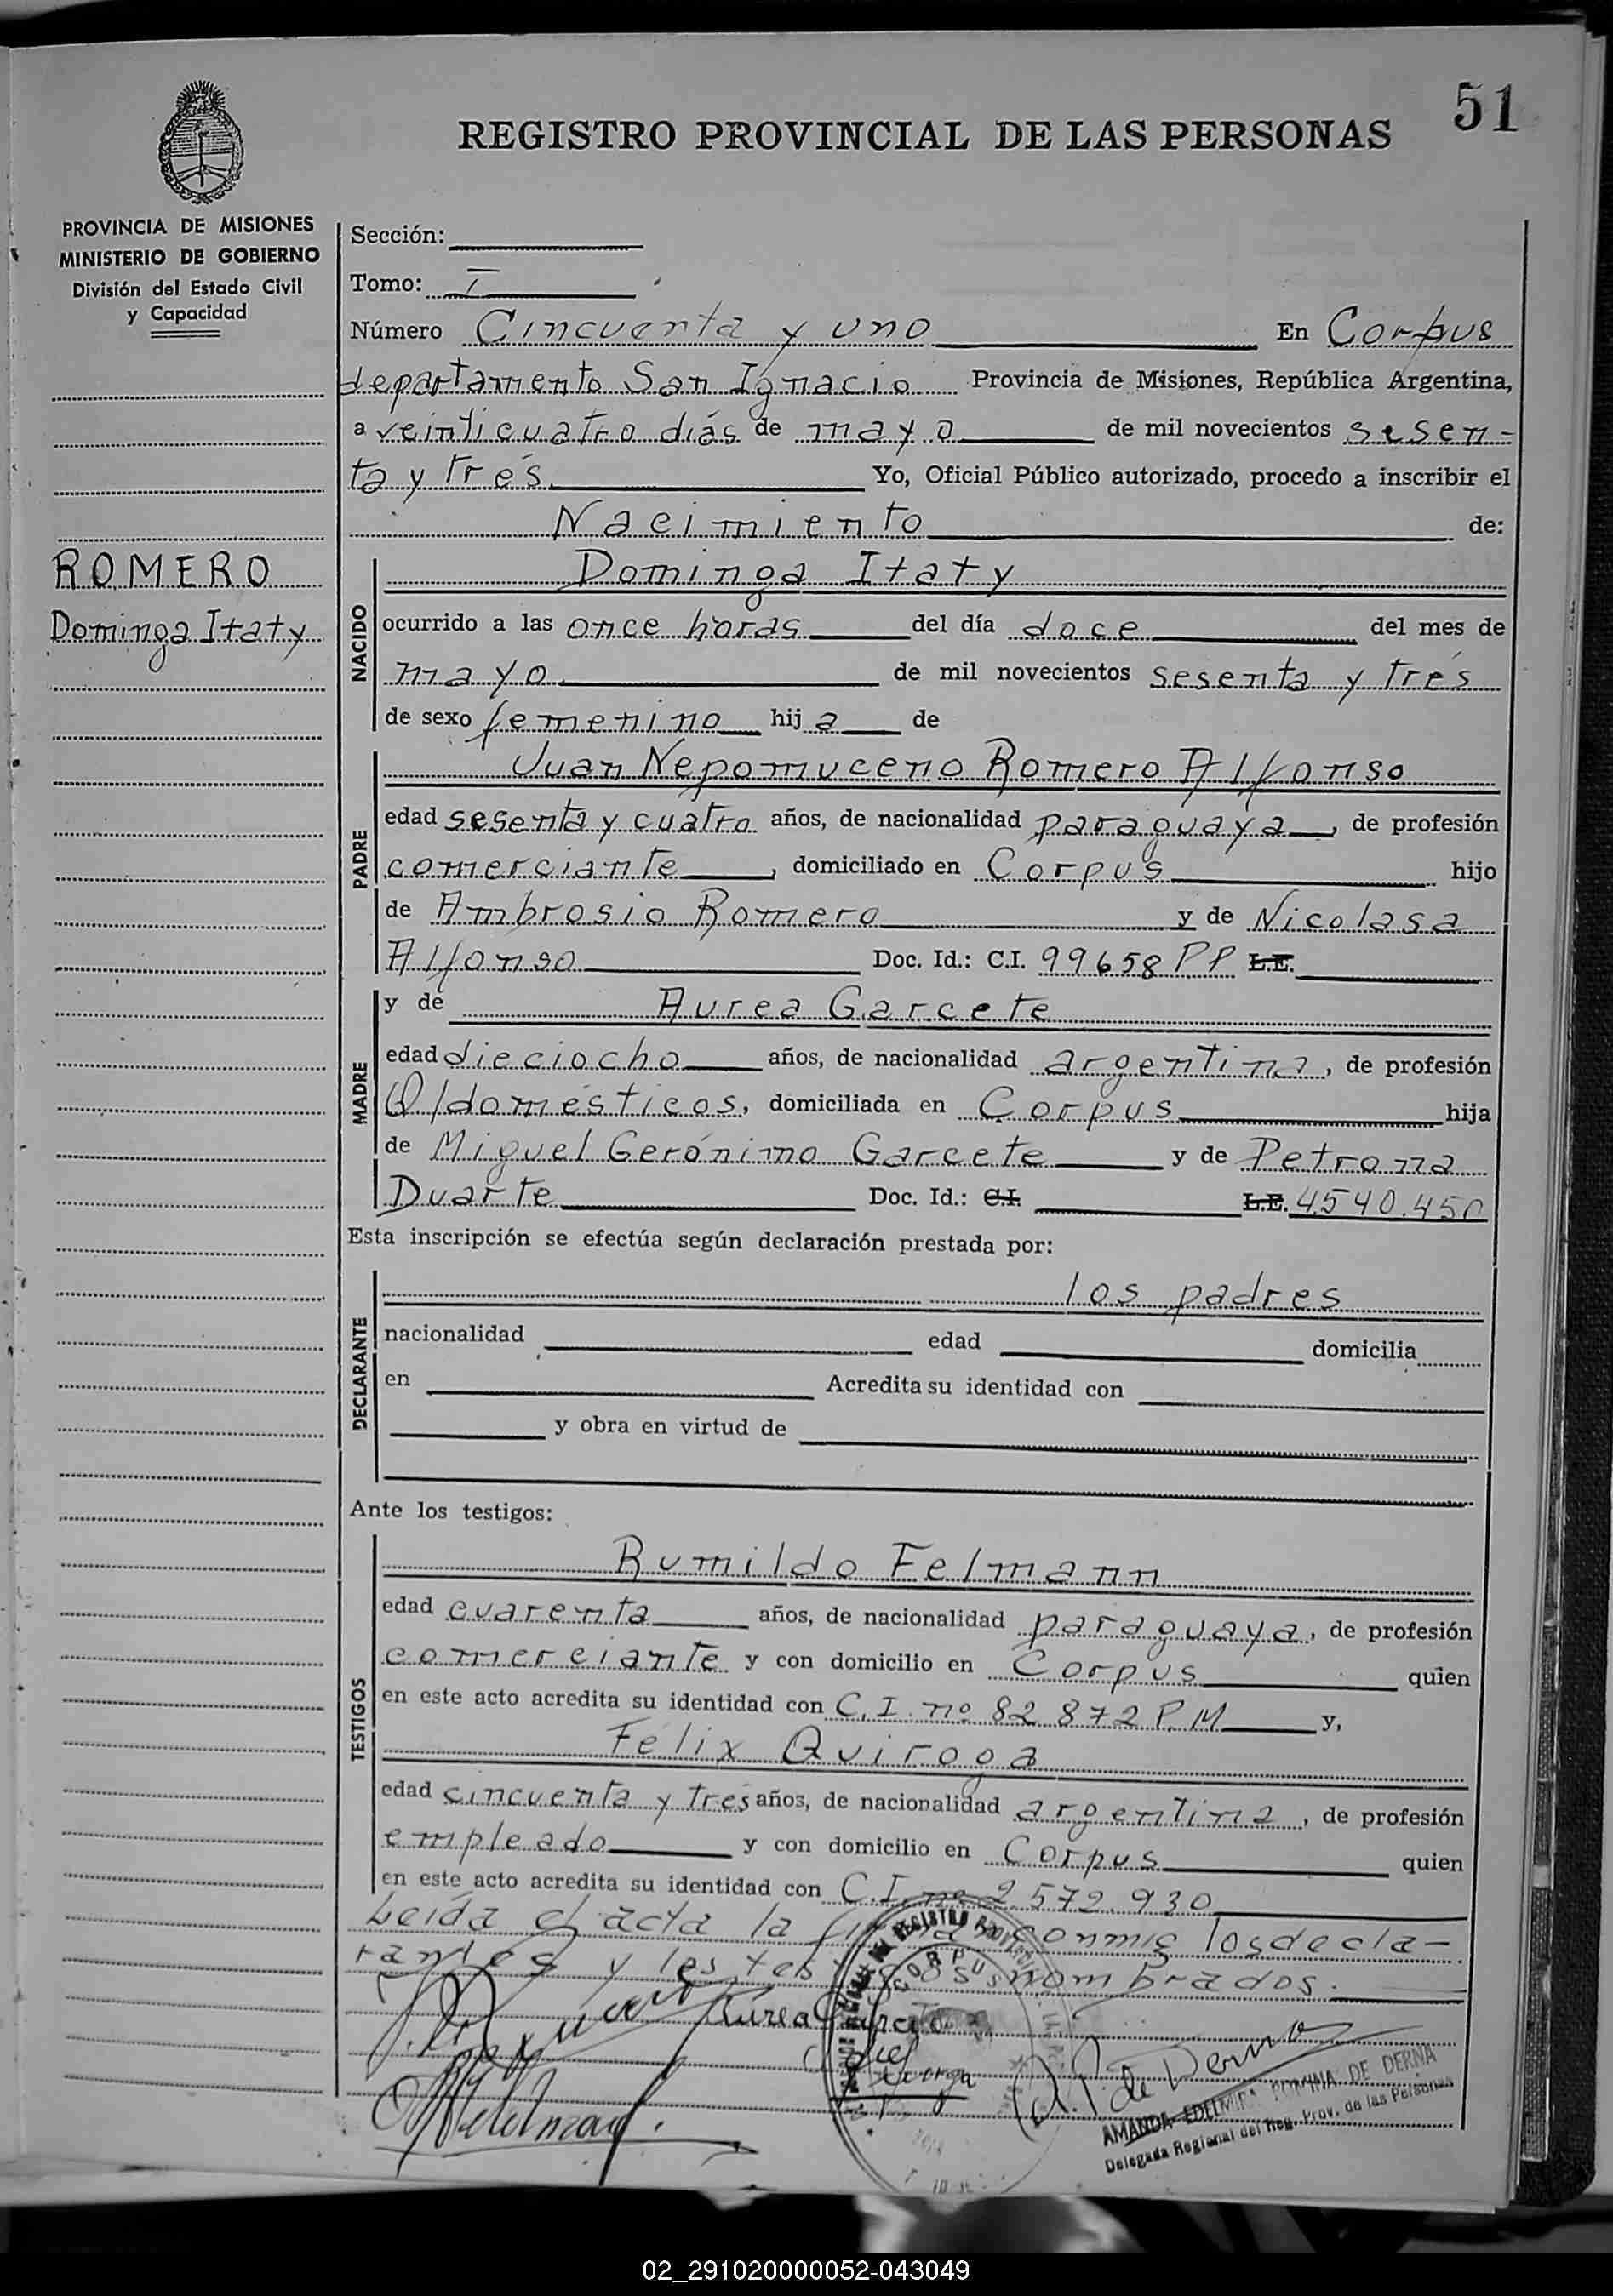 51
REGISTRO PROVINCIAL DE LAS PERSONAS
PROVINCIA DE MISIONES
MINISTERIO DE GOBIERNO
División del Estado Civil
y Capacidad
ROMERO
Dominga Itaty
Sección:
Tomo: I
Número Cincuenta y uno En Corpus
departamento San Ignacio Provincia de Misiones, República Argentina,
a veinticuatro días de mayo de mil novecientos sesen-
ta y tres Yo, Oficial Público autorizado, procedo a inscribir el
Nacimiento de:
NACIDO
Dominga Itaty
ocurrido a las once horas del día doce del mes de
mayo de mil novecientos sesenta y tres
de sexo femenino hij a de
PADRE
Juan Nepomuceno Romero Alfonso
edad sesenta y cuatro años, de nacionalidad paraguaya, de profesión
comerciante, domiciliado en Corpus hijo
de Ambrosio Romero y de Nicolasa
Alfonso Doc. Id.: C.I. 99658 PP L.E.
MADRE
y de Aurea Garcete
edad dieciocho años, de nacionalidad argentina, de profesión
Q/domésticos, domiciliada en Corpus hija
de Miguel Gerónimo Garcete y de Petrona
Duarte Doc. Id.: C.I. L.E. 4.540.450
Esta inscripción se efectúa según declaración prestada por:
DECLARANTE
los padres
nacionalidad edad domicilia
en Acredita su identidad con
y obra en virtud de
Ante los testigos:
TESTIGOS
Rumildo Felmann
edad cuarenta años, de nacionalidad paraguaya, de profesión
comerciante y con domicilio en Corpus quien
en este acto acredita su identidad con C.I. nº 82872 P.M y,
Félix Quiroga
edad cincuenta y tres años, de nacionalidad argentina, de profesión
empleado y con domicilio en Corpus quien
en este acto acredita su identidad con C.I. nº 2.572.930
Leída el acta la conmig los decla-
rantes y los testigos nombrados.
Aurea Garcete
CORPUS
A. P. de Derna
AMANDA EDELMIRA DE DERNA
Delegada Regional del Reg. Prov. de las Personas
02_291020000052-043049